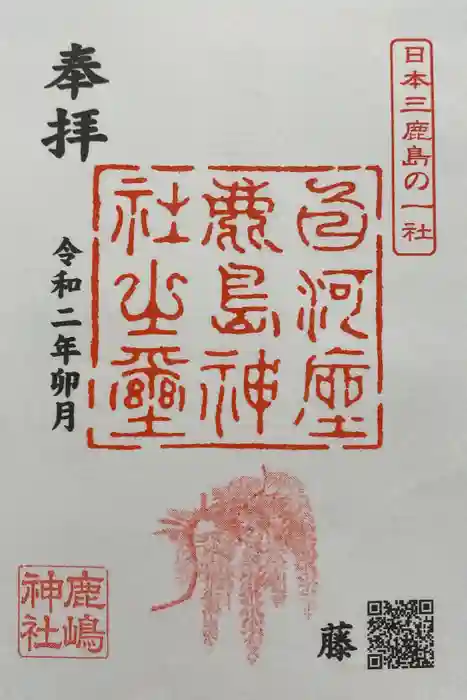 日本三鹿島の一社
奉拝
白河座
鹿島神
社之璽
令和二年卯月
鹿嶋
神社
藤